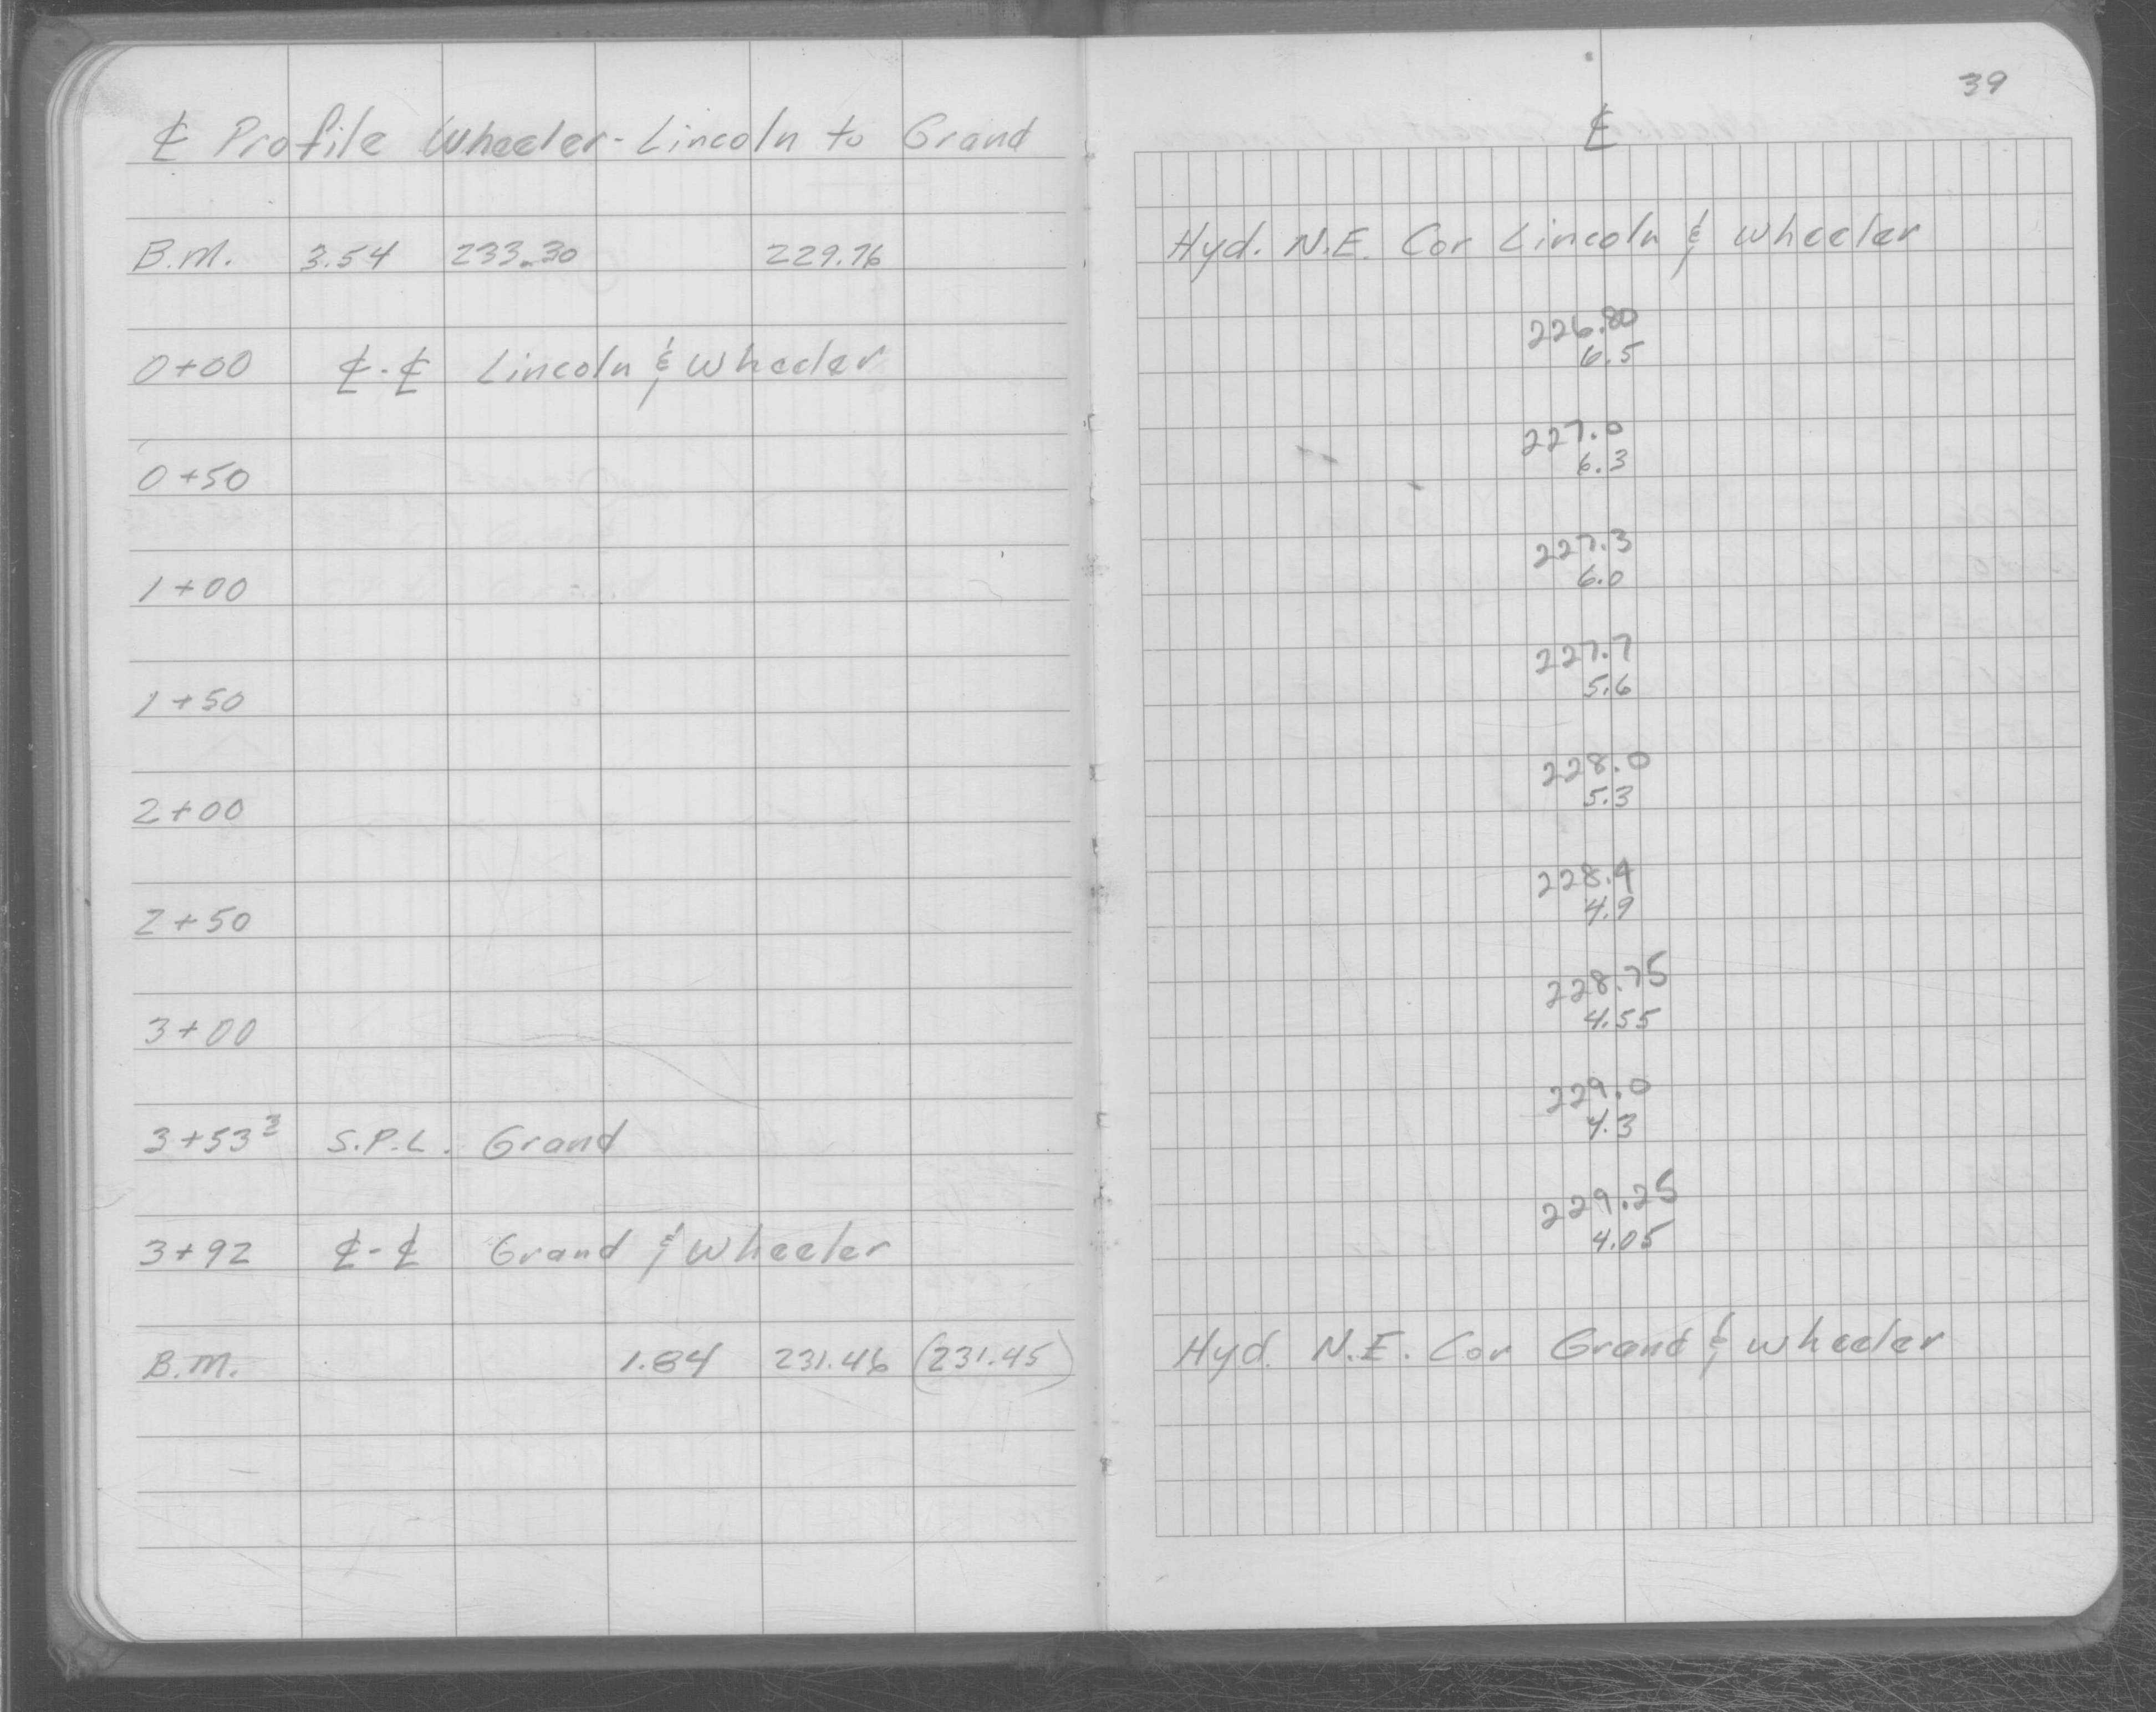 ℄ Profile Wheeler-Lincoln to Grand
B.M. 3.54 233.30 229.76
0+00 ℄-℄ Lincoln & Wheeler
0+50
1+00
1+50
2+00
2+50
3+00
3+53³ S.P.L. Grand
3+92 ℄-℄ Grand & Wheeler
B.M. 1.84 231.46 (231.45)
39
℄
Hyd. N.E. Cor Lincoln & Wheeler
226.80
6.5
227.0
6.3
227.3
6.0
227.7
5.6
228.0
5.3
228.4
4.9
228.75
4.55
229.0
4.3
229.25
4.05
Hyd. N.E. Cor Grand & Wheeler